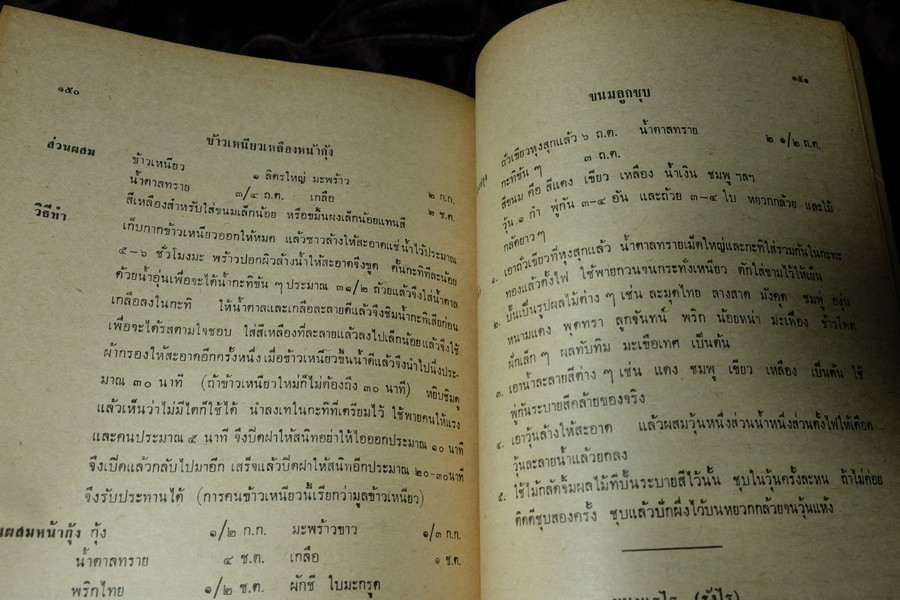 ๑๕๐
ข้าวเหนียวเหลืองหน้ากุ้ง
ส่วนผสม
ข้าวเหนียว ๑ ลิตรใหญ่ มะพร้าว ๒ ก.ก.
น้ำตาลทราย ๓/๔ ถ.ต. เกลือ ๒ ช.ต.
สีเหลืองสำหรับใส่ขนมเล็กน้อย หรือขมิ้นผงเล็กน้อยแทนสี
วิธีทำ
เก็บกากข้าวเหนียวออกให้หมด แล้วซาวล้างให้สะอาดแช่น้ำไว้ประมาณ
๕–๖ ชั่วโมงมะ พร้าวปอกผิวล้างน้ำให้สะอาดจึงขูด คั้นกะทิทีละน้อย
ด้วยน้ำอุ่นเพื่อจะได้น้ำกะทิข้น ๆ ประมาณ ๓๑/๒ ถ้วยแล้วจึงใส่น้ำตาล
เกลือลงในกะทิ ให้น้ำตาลและเกลือละลายดีแล้วจึงชิมน้ำกะทิเสียก่อน
เพื่อจะได้รสตามใจชอบ ใส่สีเหลืองที่ละลายแล้วลงไปเล็กน้อยแล้วจึงใช้
ผ้ากรองให้สะอาดอีกครั้งหนึ่ง เมื่อข้าวเหนียวขึ้นน้ำดีแล้วจึงนำไปนึ่งประ-
มาณ ๓๐ นาที (ถ้าข้าวเหนียวใหม่ก็ไม่ต้องถึง ๓๐ นาที) หยิบชิมดู
แล้วเห็นว่าไม่มีไตก็ใช้ได้ นำลงเทในกะทิที่เตรียมไว้ ใช้พายคนให้แรง
และคนประมาณ ๕ นาที จึงปิดฝาให้สนิทอย่าให้ไอออกประมาณ ๑๐ นาที
จึงเปิดแล้วกลับไปมาอีก เสร็จแล้วปิดฝาให้สนิทอีกประมาณ ๒๐-๓๐นาที
จึงรับประทานได้ (การคนข้าวเหนียวนี้เรียกว่ามูลข้าวเหนียว)
นผสมหน้ากุ้ง กุ้ง ๑/๒ ก.ก. มะพร้าวขาว ๑/๓ ก.ก.
น้ำตาลทราย ๔ ช.ต. เกลือ ๑ ช.ต.
พริกไทย ๑/๒ ช.ต. ผักชี ใบมะกรูด
๑๕๑
ขนมลูกชุบ
ถั่วเขียวหุงสุกแล้ว ๖ ถ.ต. น้ำตาลทราย ๒ ๑/๒ ถ.ต.
กะทิข้น ๆ ๓ ถ.ต.
สีขนม คือ สีแดง เขียว เหลือง น้ำเงิน ชมพู ฯลฯ
วุ้น ๑ กำ พู่กัน ๓–๔ อัน และถ้วย ๓–๔ ใบ หยวกกล้วย และไม้
กลัดยาว ๆ
๑. เอาถั่วเขียวที่หุงสุกแล้ว น้ำตาลทรายเม็ดใหญ่และกะทิใส่รวมกันในกะทะ
ทองแล้วตั้งไฟ ใช้พายกวนจนกระทั่งเหนียว ตักใส่ชามไว้ให้เย็น
๒. ปั้นเป็นรูปผลไม้ต่าง ๆ เช่น ละมุดไทย ลางสาด มังคุด ชมพู่ องุ่น
หนามแดง พุดทรา ลูกจันทน์ พริก น้อยหน่า มะเฟือง ข้าวโพด
ฝักเล็ก ๆ ผลทับทิม มะเขือเทศ เป็นต้น
๓. เอาน้ำละลายสีต่าง ๆ เช่น แดง ชมพู เขียว เหลือง เป็นต้น ใช้
พู่กันระบายสีคล้ายของจริง
๔. เอาวุ้นล้างให้สะอาด แล้วผสมวุ้นหนึ่งส่วนน้ำหนึ่งส่วนตั้งไฟให้เดือด
วุ้นละลายน้ำแล้วยกลง
๕. ใช้ไม้กลัดจิ้มผลไม้ที่ปั้นระบายสีไว้นั้น ชุบในวุ้นครั้งละหน ถ้าไม่ค่อย
ติดดีชุบสองครั้ง ชุบแล้วปักผึ่งไว้บนหยวกกล้วยจนวุ้นแห้ง